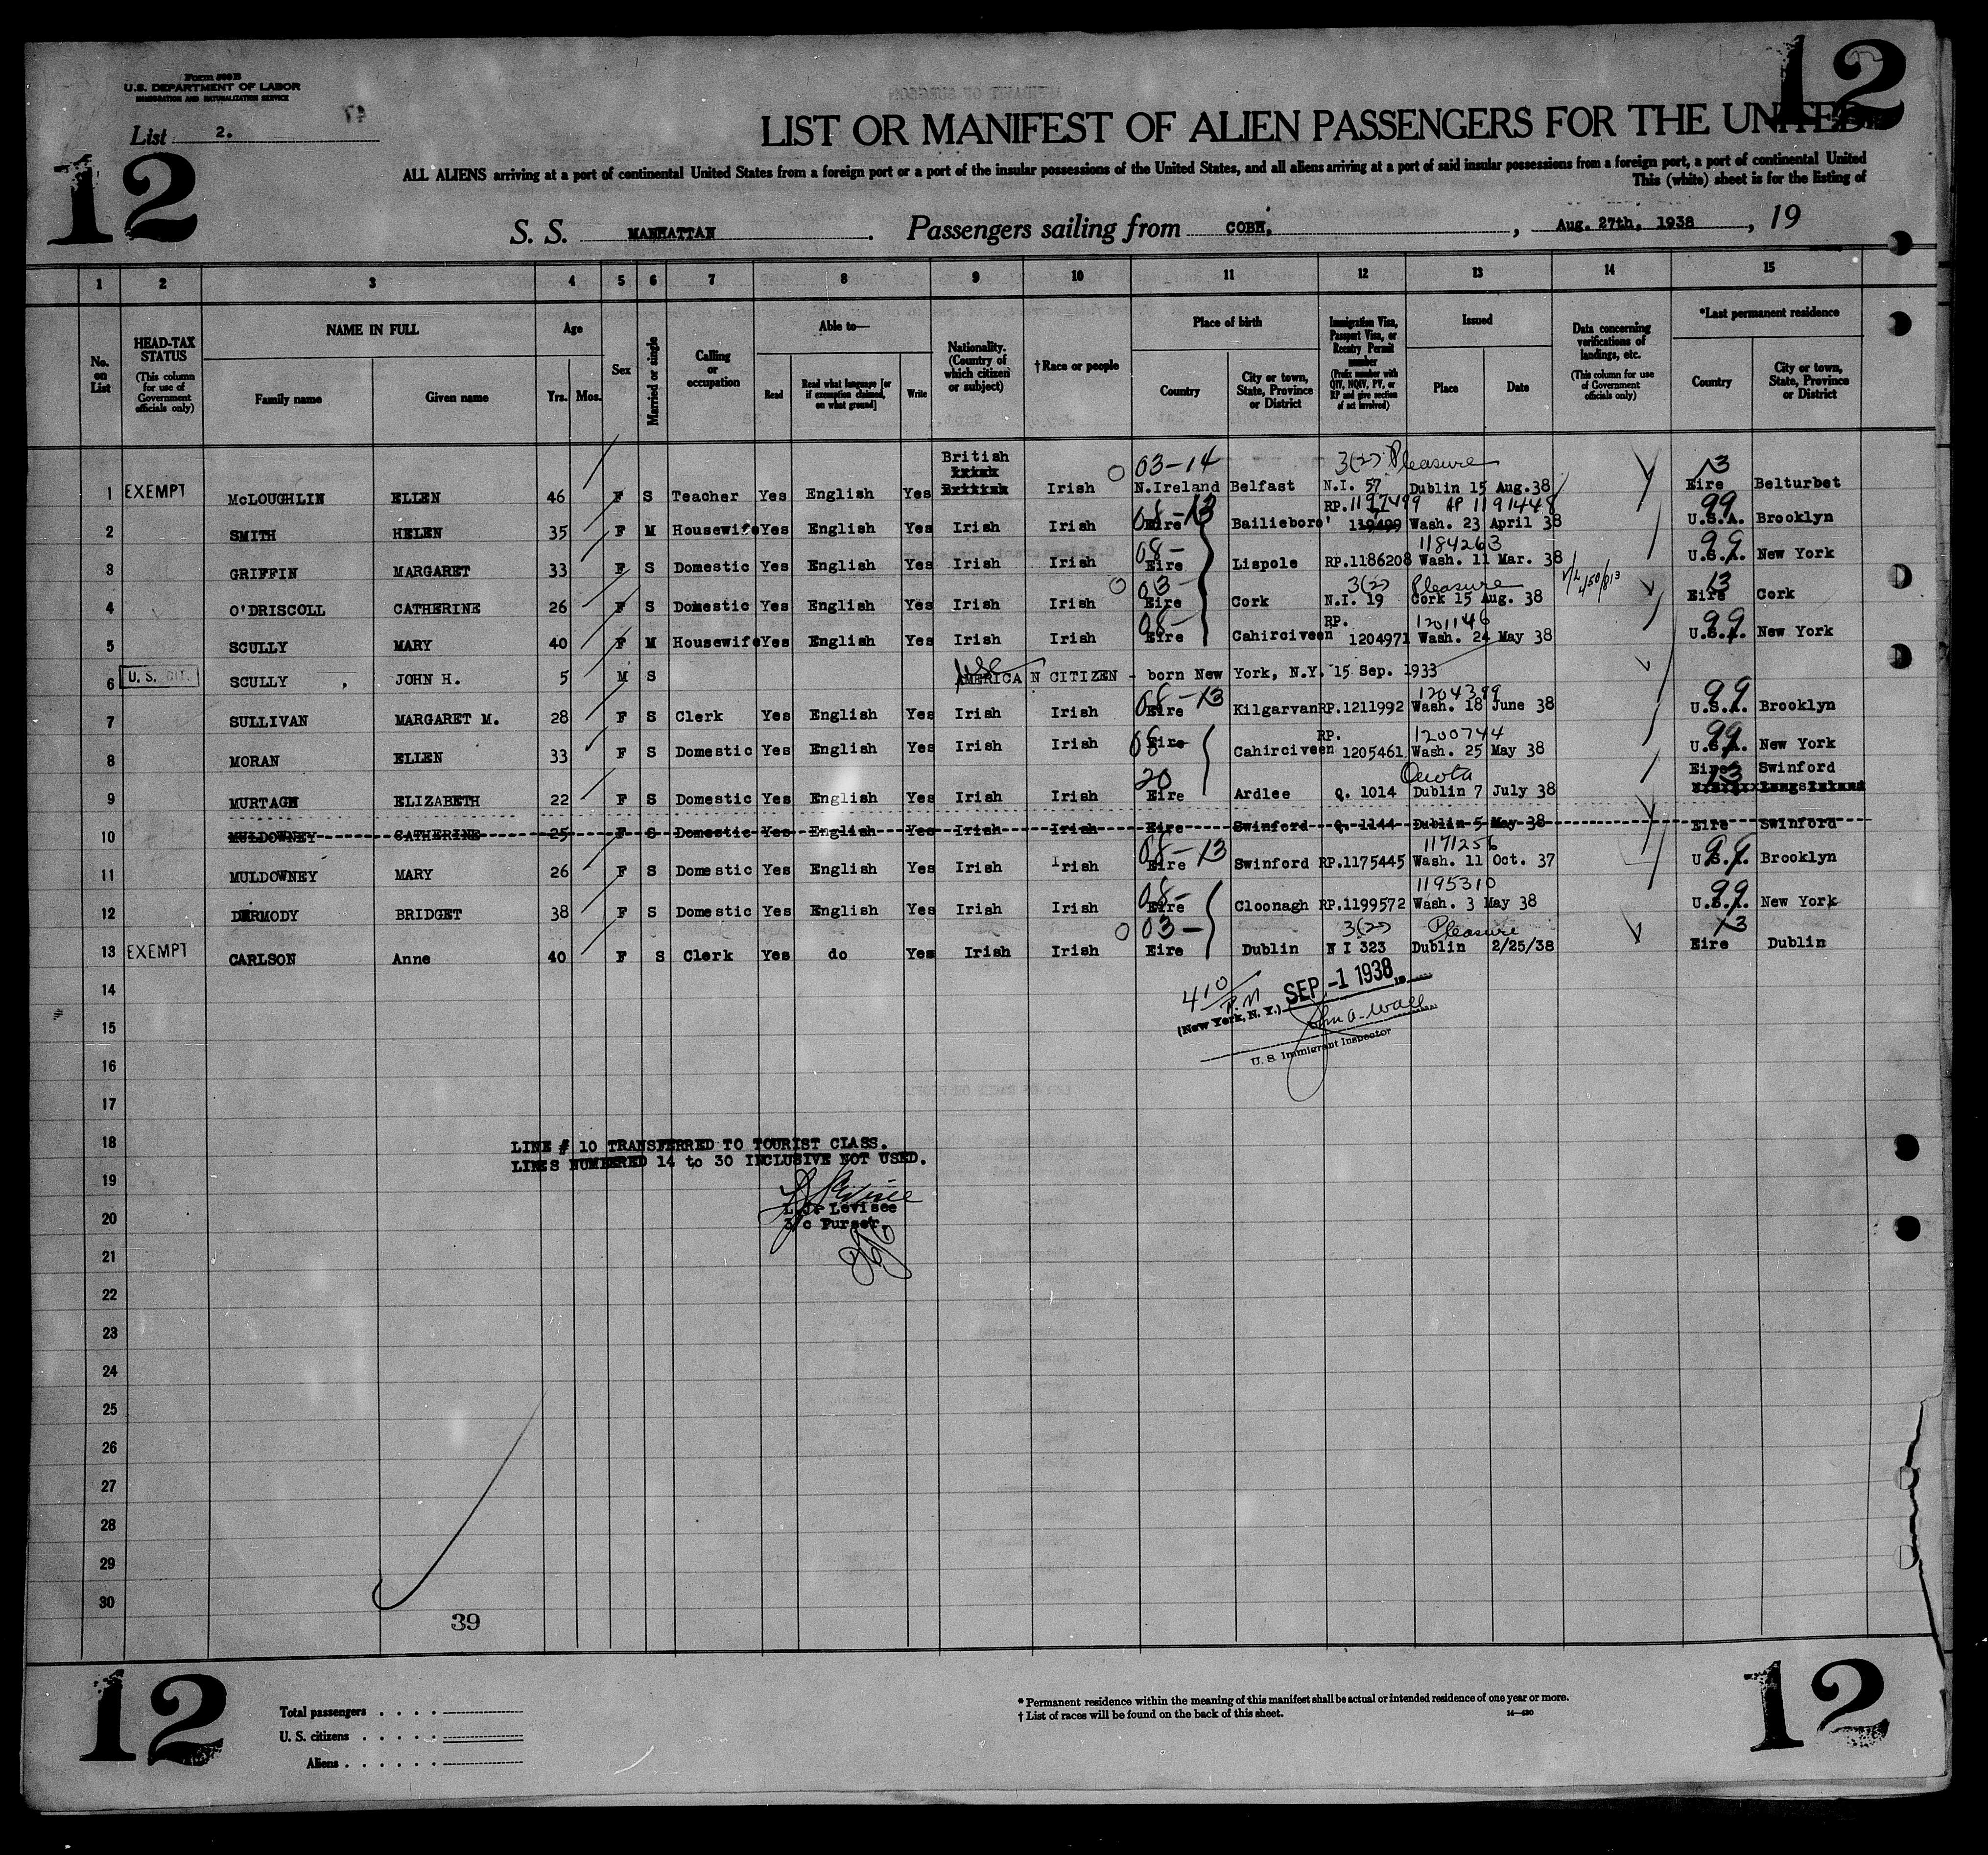 12
Form 500B
U.S. DEPARTMENT OF LABOR
IMMIGRATION AND NATURALIZATION SERVICE
List 2.
12
LIST OR MANIFEST OF ALIEN PASSENGERS FOR THE UNITED
ALL ALIENS arriving at a port of continental United States from a foreign port or a port of the insular possessions of the United States, and all aliens arriving at a port of said insular possessions from a foreign port, a port of continental United
This (white) sheet is for the listing of
S. S. MANHATTAN . Passengers sailing from COBH, , Aug. 27th, 1938 , 19
1 2 3 4 5 6 7 8 9 10 11 12 13 14 15
No. on List
HEAD-TAX STATUS (This column for use of Government officials only)
NAME IN FULL
Family name Given name
Age
Yrs. Mos.
Sex
Married or single
Calling or occupation
Able to—
Read Read what language [or if exemption claimed, on what ground] Write
Nationality. (Country of which citizen or subject)
†Race or people
Place of birth
Country City or town, State, Province or District
Immigration Visa, Passport Visa, or Reentry Permit number (Prefix number with QIV, NQIV, PV, or RP and give section of act involved)
Issued
Place Date
Data concerning verifications of landings, etc. (This column for use of Government officials only)
*Last permanent residence
Country City or town, State, Province or District
British 03-14 3(2) Pleasure 13
1 EXEMPT McLOUGHLIN ELLEN 46 F S Teacher Yes English Yes British Irish N.Ireland Belfast N.I. 57 Dublin 15 Aug.38 Eire Belturbet
08-13 RP.1197499 AP 1191448 99
2 SMITH HELEN 35 F M Housewife Yes English Yes Irish Irish Eire Bailieboro' 119499 Wash. 23 April 38 U.S.A. Brooklyn
08- 1184263 99
3 GRIFFIN MARGARET 33 F S Domestic Yes English Yes Irish Irish Eire Lispole RP.1186208 Wash. 11 Mar. 38 U.S.A. New York
03- 3(2) Pleasure 13
4 O'DRISCOLL CATHERINE 26 F S Domestic Yes English Yes Irish Irish Eire Cork N.I. 19 Cork 15 Aug. 38 Eire Cork
08- RP. 1201146 99
5 SCULLY MARY 40 F M Housewife Yes English Yes Irish Irish Eire Cahirciveen 1204971 Wash. 24 May 38 U.S.A. New York
6 U. S. CIT. SCULLY JOHN H. 5 M S AMERICAN CITIZEN - born New York, N.Y. 15 Sep. 1933
08-13 1204399 99
7 SULLIVAN MARGARET M. 28 F S Clerk Yes English Yes Irish Irish Eire Kilgarvan RP.1211992 Wash. 18 June 38 U.S.A. Brooklyn
08 RP. 1200744 99
8 MORAN ELLEN 33 F S Domestic Yes English Yes Irish Irish Eire Cahirciveen 1205461 Wash. 25 May 38 U.S.A. New York
20 Quota 13 Eire Swinford
9 MURTAGH ELIZABETH 22 F S Domestic Yes English Yes Irish Irish Eire Ardlee Q. 1014 Dublin 7 July 38
10 MULDOWNEY CATHERINE 25 F S Domestic Yes English Yes Irish Irish Eire Swinford Q. 1144 Dublin 5 May 38 Eire Swinford
08-13 1171256 99
11 MULDOWNEY MARY 26 F S Domestic Yes English Yes Irish Irish Eire Swinford RP.1175445 Wash. 11 Oct. 37 U.S.A. Brooklyn
08- 1195310 99
12 DERMODY BRIDGET 38 F S Domestic Yes English Yes Irish Irish Eire Cloonagh RP.1199572 Wash. 3 May 38 U.S.A. New York
03- 3(2) Pleasure 13
13 EXEMPT CARLSON Anne 40 F S Clerk Yes do Yes Irish Irish Eire Dublin N I 323 Dublin 2/25/38 Eire Dublin
14
410 P.M SEP -1 1938 19
15
(New York, N. Y.) John A. Wall
U. S. Immigrant Inspector
16
17
18
LINE # 10 TRANSFERRED TO TOURIST CLASS.
LINES NUMBERED 14 to 30 INCLUSIVE NOT USED.
19
L.J. Levisee
20
3/c Purser.
21
22
23
24
25
26
27
28
29
30
39
12
12
Total passengers
U. S. citizens
Aliens
* Permanent residence within the meaning of this manifest shall be actual or intended residence of one year or more.
† List of races will be found on the back of this sheet.
14—430